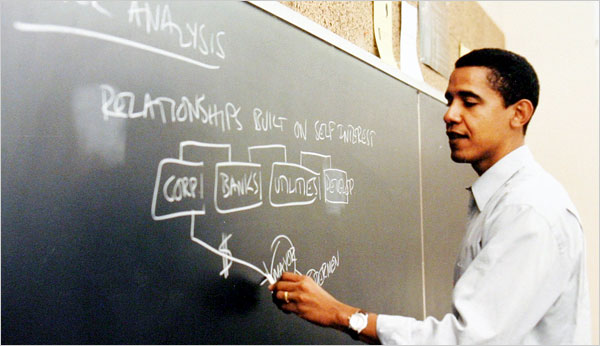 ANALYSIS
RELATIONSHIPS BUILT ON SELF INTEREST
CORP BANKS UTILITIES DEVELOP
$
MAYOR